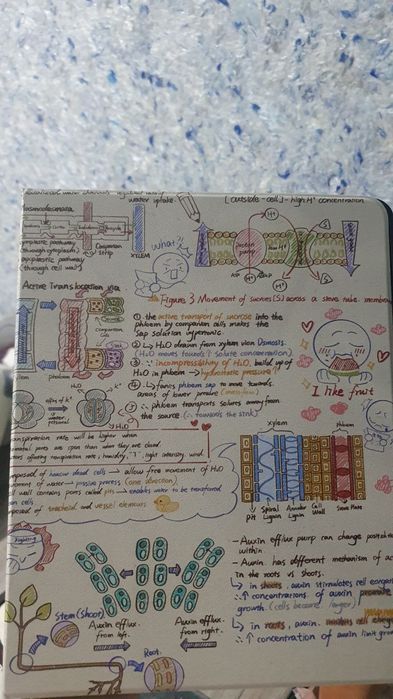 water uptake.
[outside-cell]-high H⁺ concentration
plasmodesmata
symplastic pathway
(through cytoplasm)
apoplastic pathway
(through cell wall)
Casparian
strip
XYLEM
what?
H⁺
proton
pump
H⁺
S
ATP
Figure 3 Movement of sucrose (S) across a sieve tube membrane
Active Translocation via
xylem
phloem
companion
cell
① the active transport of sucrose into the
phloem by companion cells makes the
sap solution hypertonic
② ↳ H₂O drawn from xylem via Osmosis.
(H₂O moves towards ↑ solute concentration)
③ ∵ incompressibility of H₂O, build up of
H₂O in phloem → hydrostatic pressure ↑
④ ↳ forces phloem sap to move towards
areas of lower pressure (mass flow)
⑤ ∴ phloem transports solutes away from
the source (∴ towards the sink)
I like fruit
K⁺
H₂O
transpiration rate will be higher when
stomatal pores are open than when they are closed.
affecting transpiration rate; humidity, T°, light intensity, wind.
composed of hollow dead cells → allow free movement of H₂O
movement of water → passive process (one direction)
cell wall contains pores called pits → enables water to be transferred
between cells
composed of tracheid and vessel elements
xylem
phloem
Pit
Spiral
Lignin
Annular
Lignin
Cell
Wall
Sieve Plate
Stem (Shoot)
Auxin efflux
from left.
Auxin efflux
from right.
Root
- Auxin efflux pump can change position
within
- Auxin has different mechanism of
in the roots vs shoots.
↳ in shoots, auxin stimulates cell elongation
∴ ↑ concentrations of auxin promote
growth. (cells become larger)
↳ in roots, auxin inhibits cell
∴ ↑ concentration of auxin limit growth